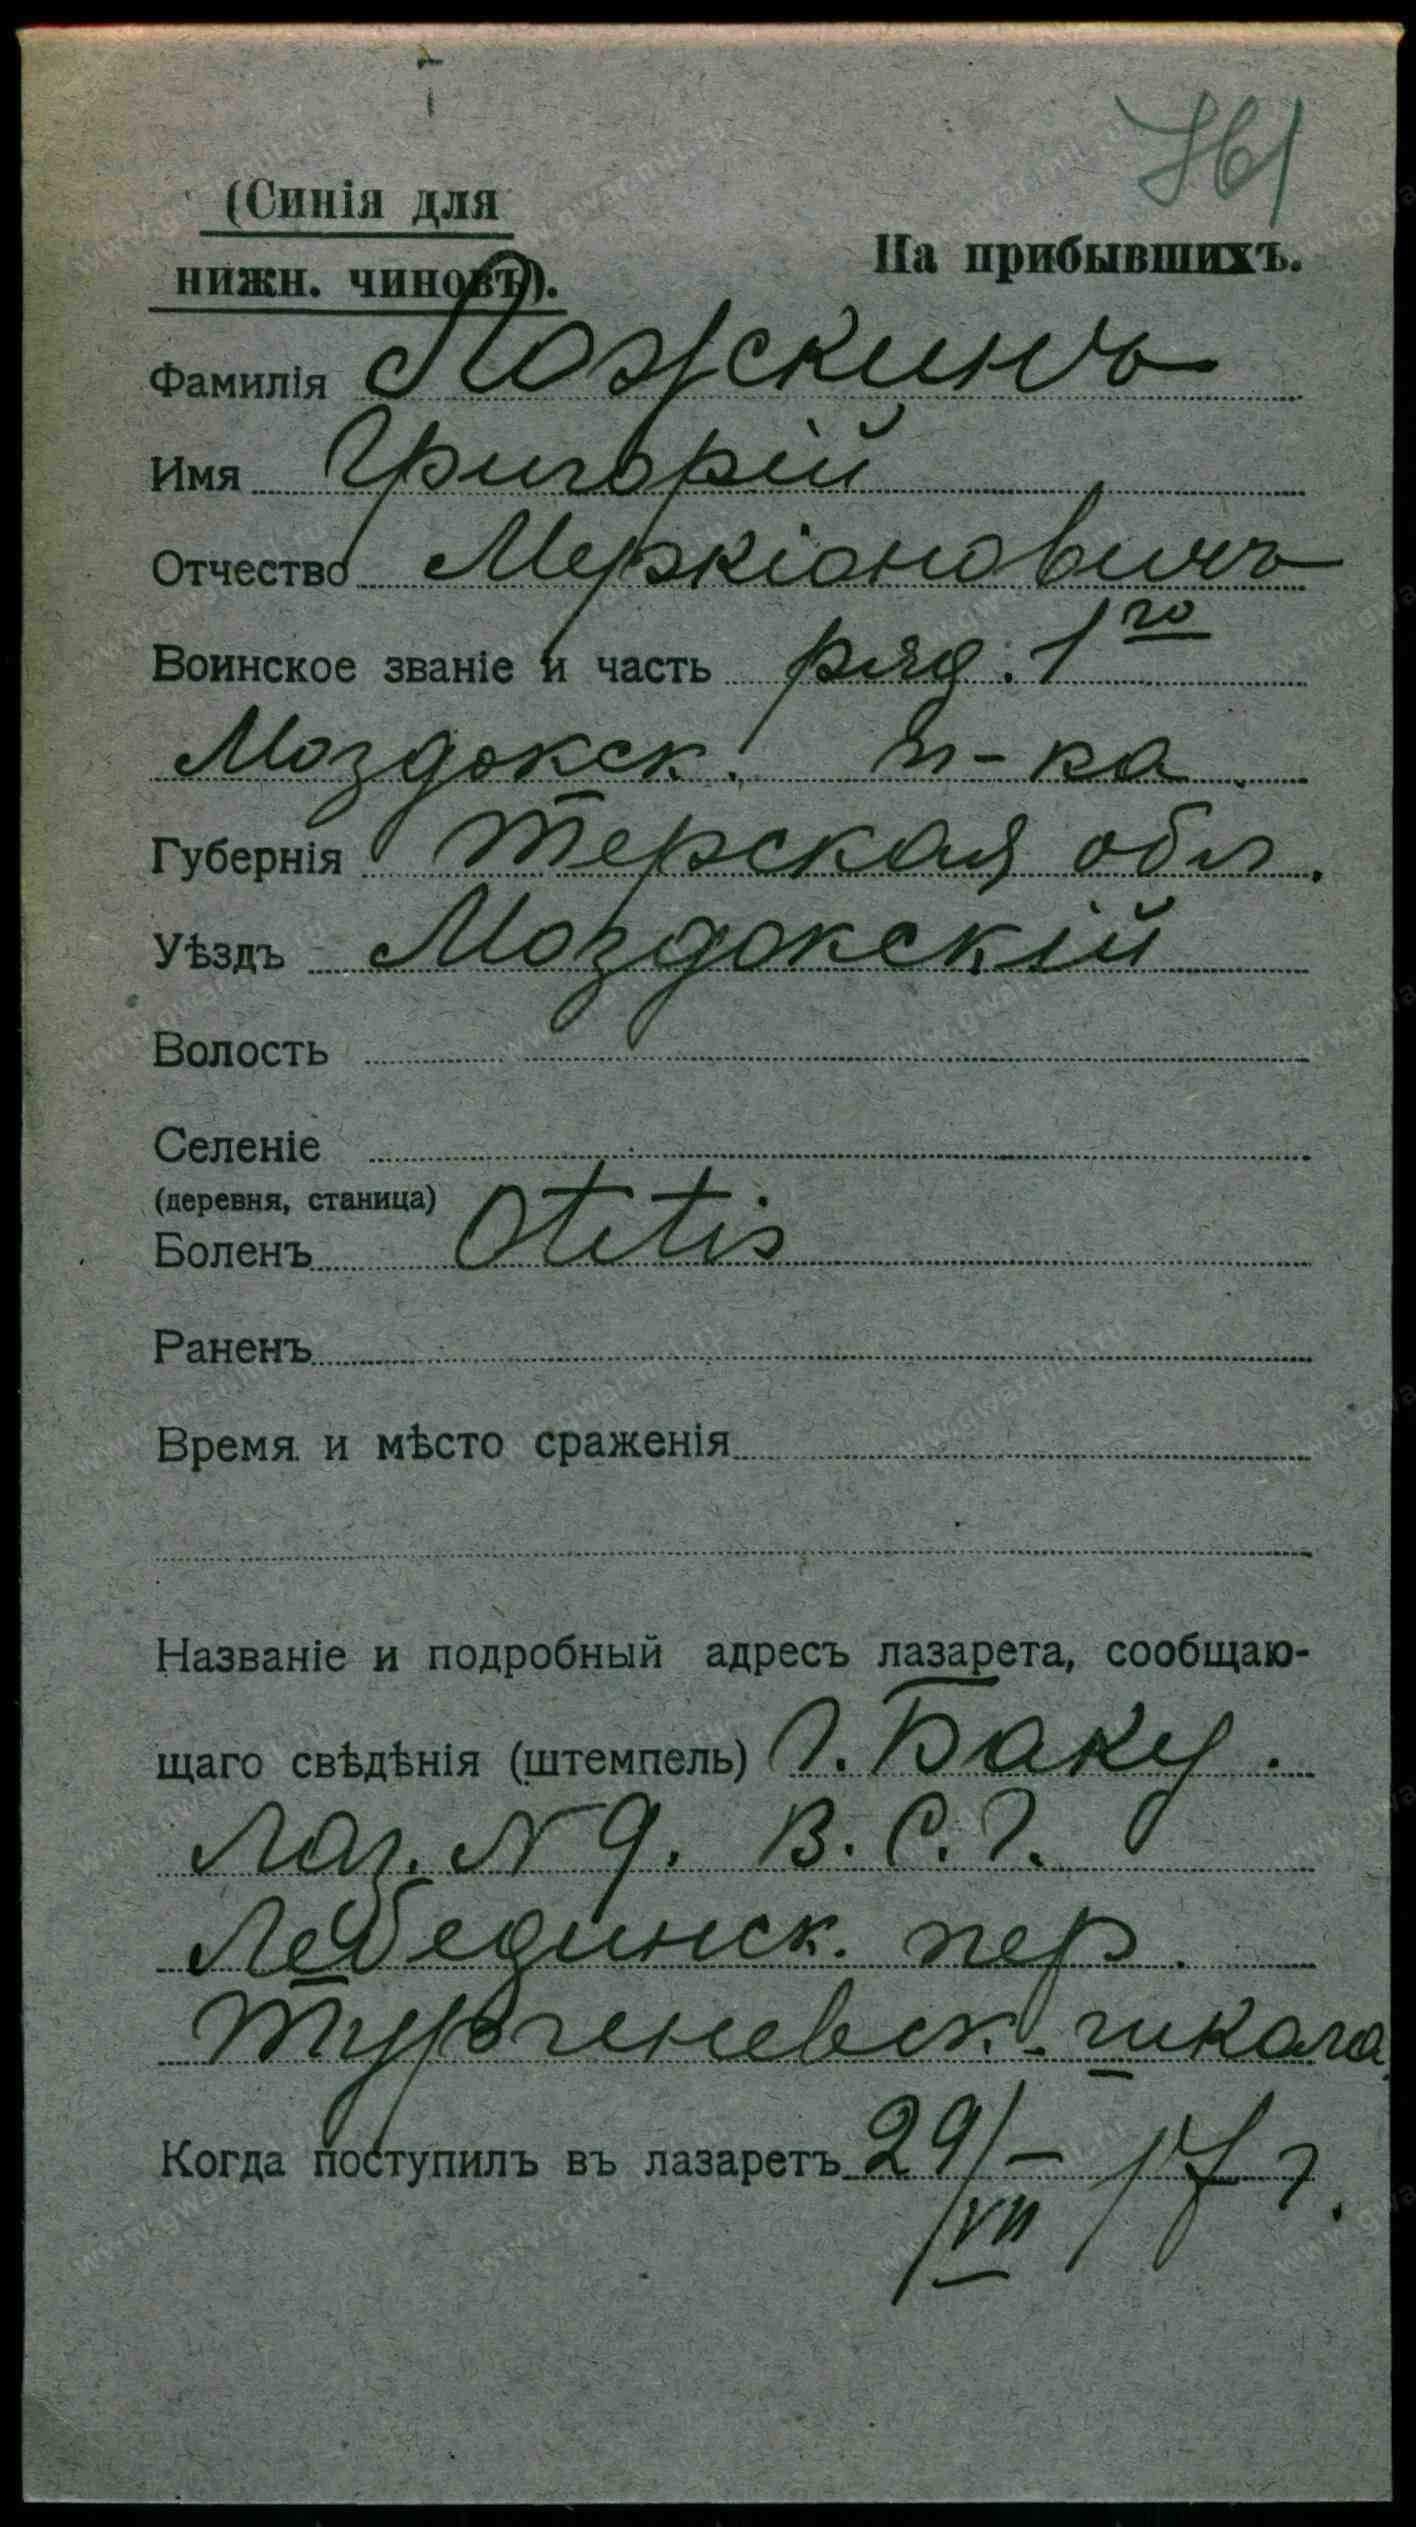 761
(Синія для
нижн. чиновъ).
На прибывшихъ.
Фамилія Ложкинъ
Имя Григорій
Отчество Меркіоновичъ
Воинское званіе и часть ряд. 1го
Моздокск. п-ка
Губернія Терская обл.
Уѣздъ Моздокскій
Волость
Селеніе
(деревня, станица)
Боленъ Otitis
Раненъ
Время и мѣсто сраженія
Названіе и подробный адресъ лазарета, сообщаю-
щаго свѣдѣнія (штемпель) г. Баку.
Лаз. N 9. В. С. Г.
Лебединск. пер.
Тургеневск. школа
Когда поступилъ въ лазаретъ 29/VII – 17 г.